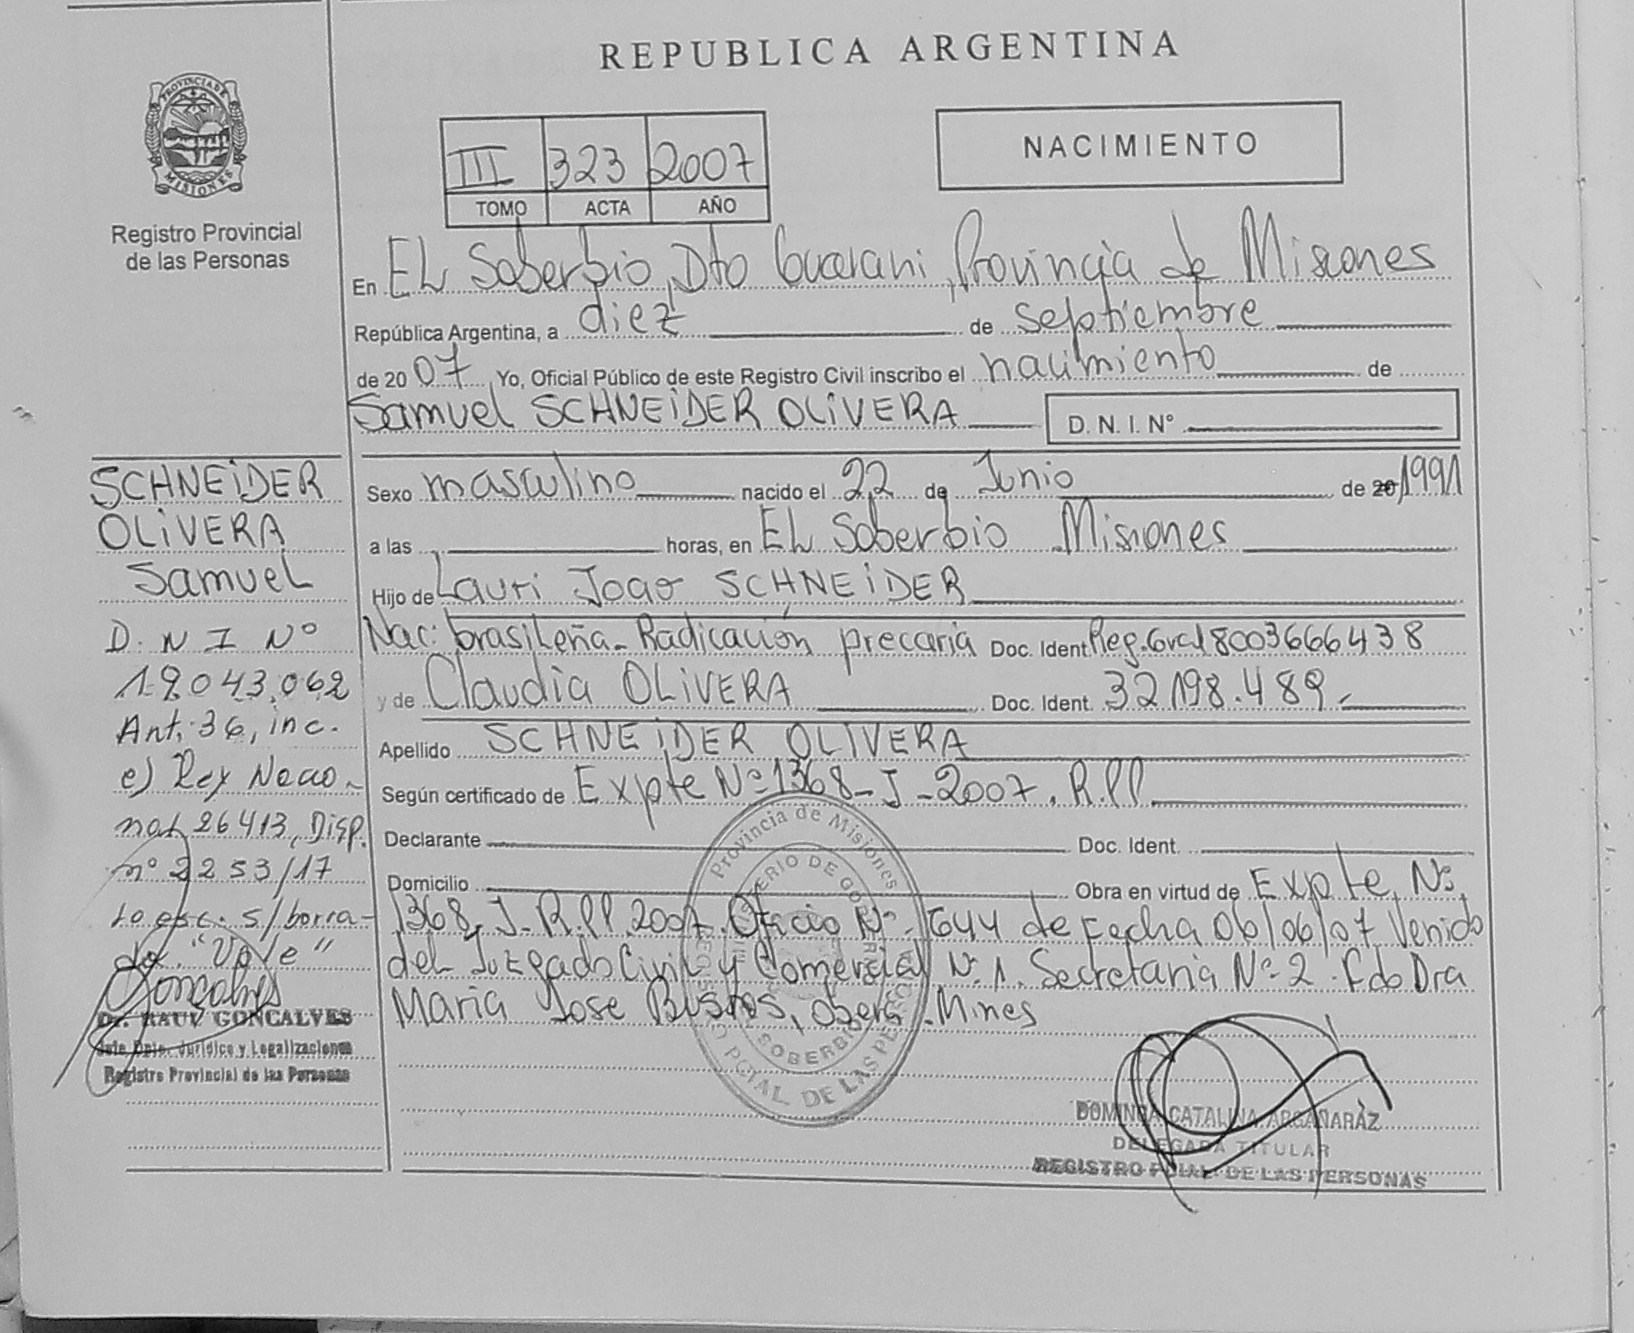 REPUBLICA ARGENTINA
PROVINCIA DE
MISIONES
Registro Provincial
de las Personas
III 323 2007
TOMO ACTA AÑO
NACIMIENTO
En EL Soberbio, Dto Guarani, Provincia de Misiones
República Argentina, a diez de septiembre
de 20 07 Yo, Oficial Público de este Registro Civil inscribo el nacimiento de
Samuel SCHNEIDER OLIVERA D. N. I. Nº
Sexo masculino nacido el 22 de Junio de 20 1991
a las horas, en EL Soberbio Misiones
Hijo de Lauri Joao SCHNEIDER
Nac: brasileña - Radicación precaria Doc. Ident. Reg. Gral 8003666438
y de Claudia OLIVERA Doc. Ident. 32198.489.
Apellido SCHNEIDER OLIVERA
Según certificado de Expte Nº 1368-J-2007. R.PP
Declarante Doc. Ident.
Domicilio Obra en virtud de Expte. Nº
1368-J-R.PP. 2007. Oficio Nº 1644 de Fecha 06/06/07 Venido
del Juzgado Civil y Comercial Nº 1. Secretaria Nº 2 Fdo Dra
Maria Jose Bustos, Oberá - Mnes
SCHNEIDER
OLIVERA
Samuel
D. N I Nº
19.043.062
Art. 36, inc.
e) Ley Nacio-
nal 26413, Disp.
nº 2253/17
lo esc. s/borra-
do. "Vale"
Goncalves
Dr. RAUL GONCALVES
Jefe Dpto. Jurídico y Legalizaciones
Registro Provincial de las Personas
Provincia de Misiones
SOBERBIO
PCIAL. DE LAS PERSONAS
DOMINGA CATALINA ARGAÑARAZ
DELEGADA TITULAR
REGISTRO PCIAL. DE LAS PERSONAS